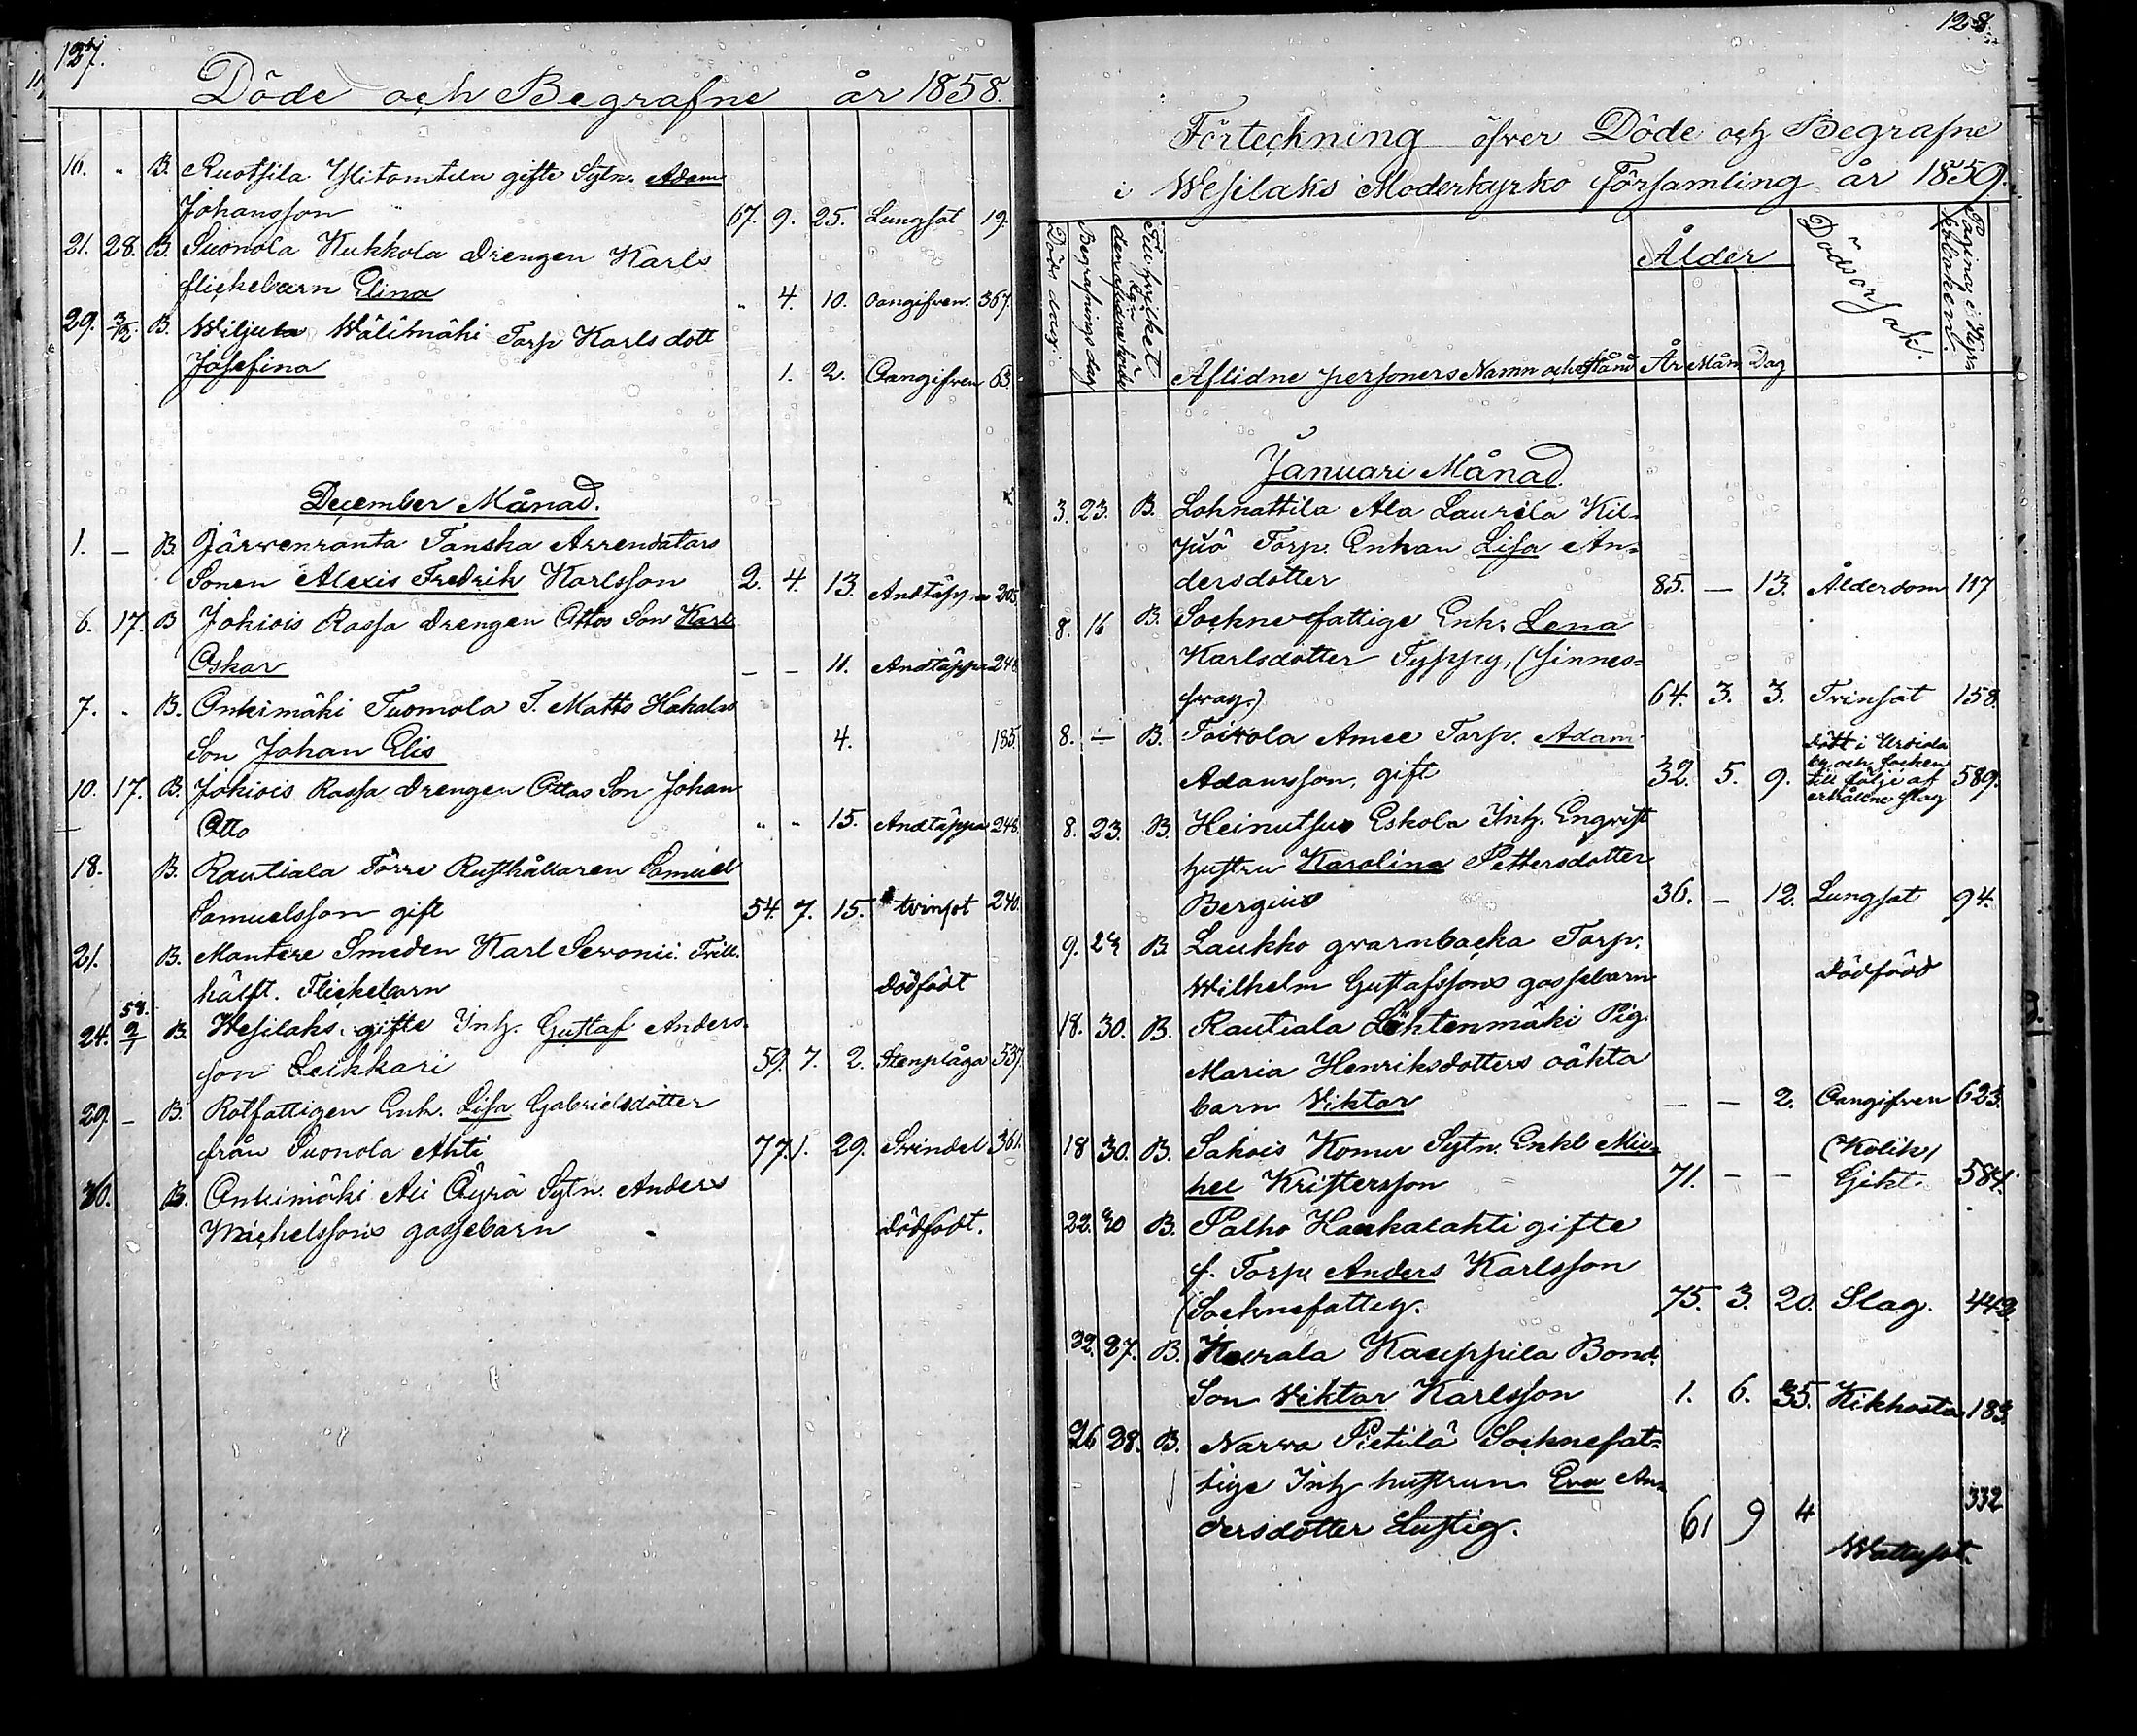 127.
Döde och Begrafne år 1858.
16. " B. Ruotsila Ylitomtila gifte Sytn. Adam
Johansson 67. 9. 25. Lungsot 19.
21. 28. B. Suonola Kukkola Drengen Karls
flickebarn Elina " 4. 10. Oangifven. 367.
29. 5/12 B. Wiljula Wälimäki Torp Karls dott
Josefina 1. 2. Oangifven 63
December Månad.
1. — B. Järvenranta Tanska Arrendators
Sonen Alexis Fredrik Karlsson 2. 4. 13. Andtäppa 205.
6. 17. B Jokiois Rassa Drengen Ottos Son Karl
Oskar — — 11. Andtäppa 248
7. " B. Onkimäki Tuomola T. Matts Hakalas
Son Johan Elis 4. 185.
10. 17. B. Jokiois Rassa Drengen Ottos Son Johan
Otto " " 15. Andtäppa 248.
18. B. Rautiala Törre Rusthållaren Samuel
Samuelsson gift 54. 7. 15. tvinsot 240.
21. B. Mantere Smeden Karl Sevonii Trill.
hälft. Flickebarn dödfödt
59.
24. 2/1 B. Wesilaks gifte Inh. Gustaf Anders-
son Leikkari 59. 7. 2. Stenplåga 537.
29. — B. Rotfattigen Enk. Lisa Gabrielsdotter
från Suonola Ahti 77. 1. 29. Svindel 361.
30. B. Onkimäki Ali Äyrä Sytn. Anders
Michelssons gossebarn dödfödt.
128.
Förteckning öfver Döde och Begrafne
i Wesilaks Moderkyrko församling år 1859.
Döds dag.
Begrafnings dag
Till hvilket
den aflidne hörde
Aflidne personers Namn och stånd
Ålder
År Mån Dag
Dödsorsak.
Pagina i Kyrk
boken.
Januari Månad.
3. 23. B. Lahnattila Ala Laurila Kil-
juö Torp. Enkan Lisa An-
dersdotter 85. — 13. Ålderdom 117
8. 16 B. Socknefattige Enk. Lena
Karlsdotter Typpy, (sinnes-
svag.) 64. 3. 3. Tvinsot 158.
8. — B. Toivola Amee Torp. Adam
Adamsson, gift 32. 5. 9. dött i Urdiala
by och socken
till följe af
erhållne slag 589.
8. 23. B. Heinutsuo Eskola Inh. Engvist
hustru Karolina Pettersdotter
Bergius 36. — 12. Lungsot 94.
9. 23 B. Laukko qvarnbacka Torp.
Wilhelm Gustafssons gossebarn dödfödd
18. 30. B. Rautiala Lähtenmäki Pig.
Maria Henriksdotters oäkta
barn Viktor — — 2. Oangifven 623.
18 30. B. Sakois Komu Sytn. Enkl Mic-
hel Kristersson 71. — — (Kolik)
Gikt. 584.
22. 30 B. Palho Haukalahti gifte
f. Torp. Anders Karlsson
(Socknefattig. 75. 3. 20. Slag. 442
22. 27. B. Kurala Kauppila Bond.
Son Viktor Karlsson 1. 6. 25. Kikhosta 183.
26 28. B. Narva Pietilä Socknefat-
tige Inh hustrun Eva An-
dersdotter Lustig. 61 9 4 332
Wattusot.